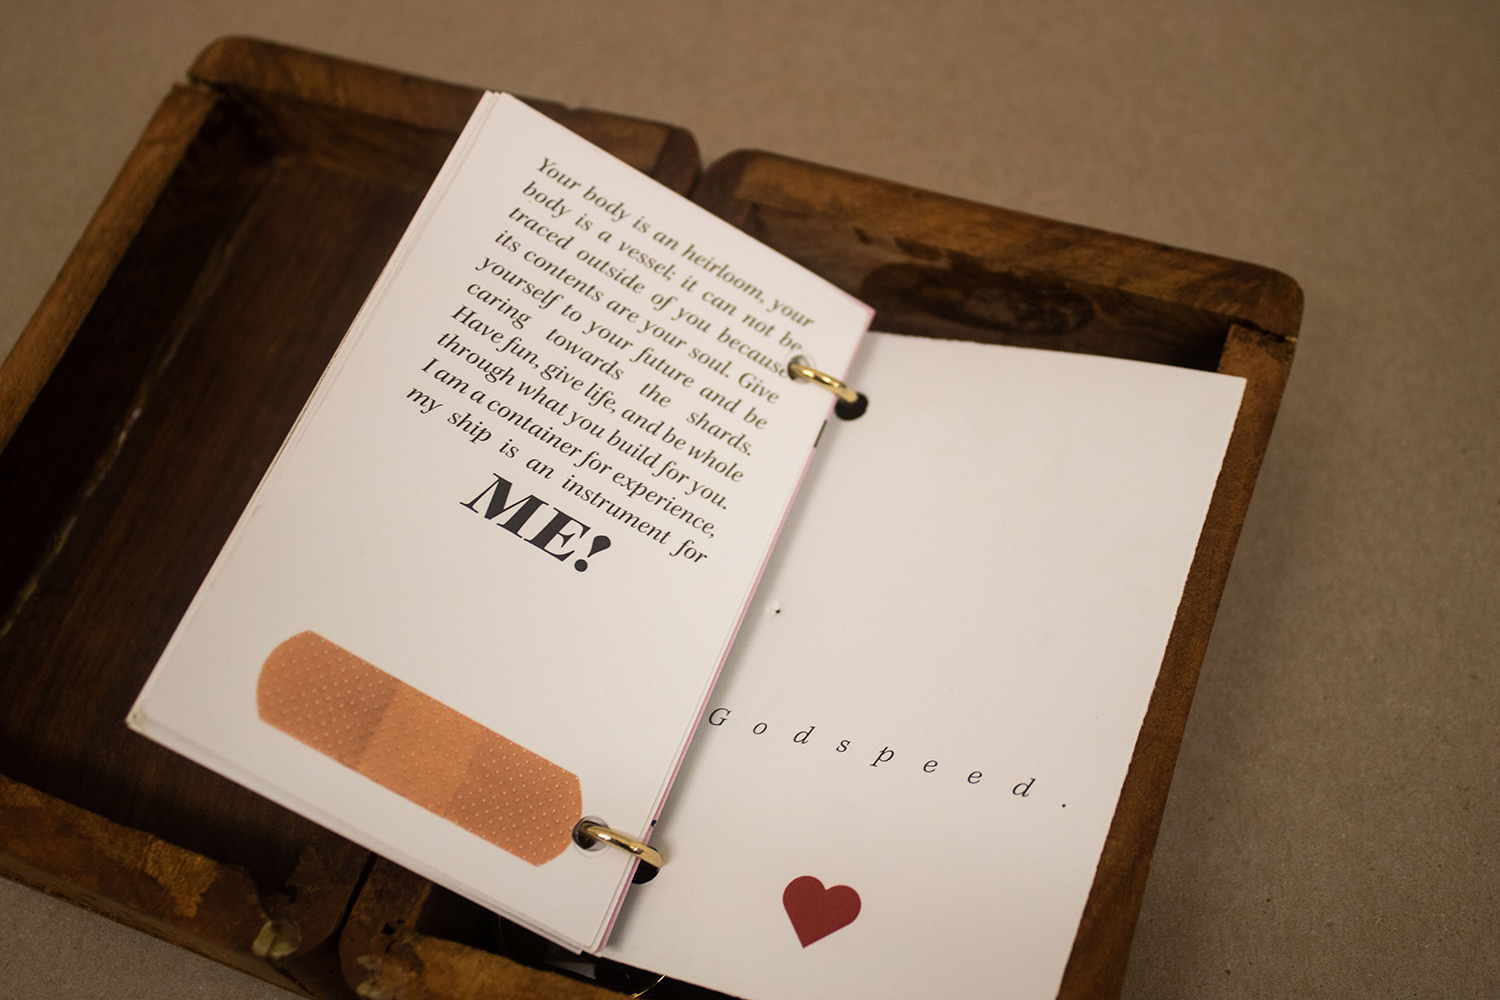 Your body is an heirloom, your
body is a vessel; it can not be
traced outside of you because
its contents are your soul. Give
yourself to your future and be
caring towards the shards.
Have fun, give life, and be whole
through what you build for you.
I am a container for experience,
my ship is an instrument for
ME!
Godspeed.